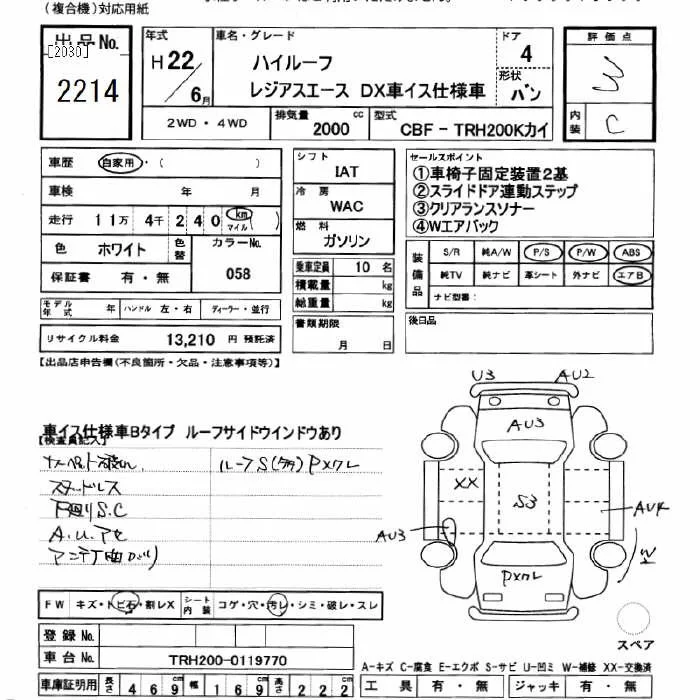 (複合機)対応用紙
出品No. [2030] 2214
年式 H22/6月
車名・グレード ハイルーフ
レジアスエース DX車イス仕様車
ドア 4
形状 バン
評価点 3
内装 C
2WD・4WD
排気量 2000 cc
型式 CBF-TRH200Kカイ
車歴 自家用・( )
車検 年 月
走行 11万 4千 240 km マイル ( )
色 ホワイト 色替 カラーNo. 058
保証書 有・無
モデル年式 年 ハンドル 左・右 ディーラー・並行
リサイクル料金 13,210 円 預託済
シフト IAT
冷房 WAC
燃料 ガソリン
乗車定員 10 名
積載量 kg
総重量 kg
書類期限 月 日
セールスポイント
①車椅子固定装置2基
②スライドドア連動ステップ
③クリアランスソナー
④Wエアバック
装備品 S/R 純A/W P/S P/W ABS
純TV 純ナビ 革シート 外ナビ エアB
ナビ型番:
後日品
【出品店申告欄(不良箇所・欠品・注意事項等)】
車イス仕様車Bタイプ ルーフサイドウインドウあり
【検査員記入】
ルーフS(タタ) PXワレ
スタッドレス
下廻りS.C
A.U.アセ
U3 AU2
AU3
XX S3
AU3 AU4
W
PXワレ
スペア
FW キズ・トビ石・割レX シート内装 コゲ・穴・汚レ・シミ・破レ・スレ
登録No.
車台No. TRH200-0119770
A-キズ C-腐食 E-エクボ S-サビ U-凹ミ W-補修 XX-交換済
車庫証明用 長さ 469 cm 幅 169 cm 高さ 222 cm
工具 有・無 ジャッキ 有・無